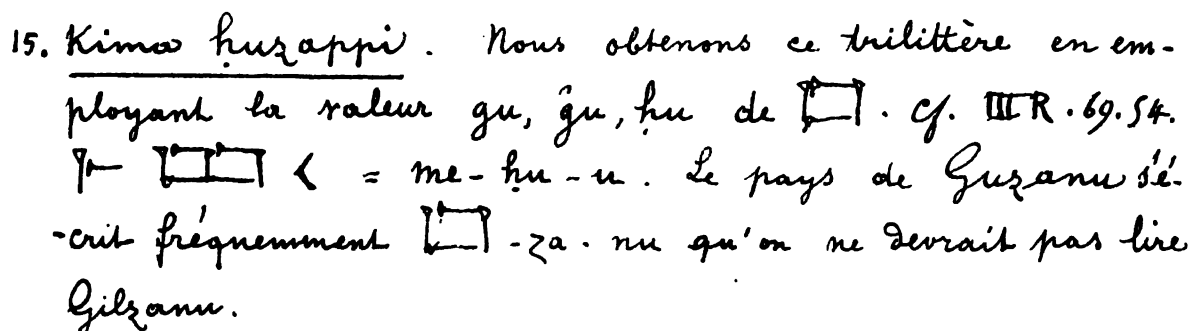 15. Kima ḫuzappi. Nous obtenons ce trilittère en em-
ployant la valeur gu, ĝu, ḫu de 𒄃. cf. III R. 69. 54.
𒈨 𒌋 = me-ḫu-u. Le pays de Guzanu s'é-
-crit fréquemment 𒄃-za-nu qu'on ne devrait pas lire
Gilzanu.